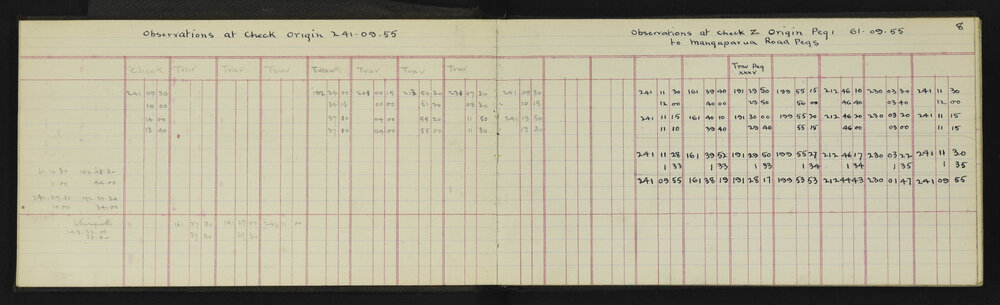 Observations at Check Origin 241-09-55
Check Trav Trav Trav Trav Trav Trav Trav
241 09 30 192 34 00 204 00 15 213 50 30 234 07 30 241 09 30
10 00 00 00 51 20 08 30 10 15
14 00 37 50 04 00 55 20 11 50 241 13 50
13 40 04 00 55 00 11 30 13 30
11 00
241-09-50
10 00 34 00
33-20
161 37 30 241 11 00
37 30
8
Observations at Check Z Origin Peg 1 61-09-55
to Mangaparua Road Pegs
Trav Peg
XXXV
241 11 30 161 39 40 191 29 50 199 55 15 212 46 10 230 03 30 241 11 30
12 00 40 00 29 50 56 00 46 40 03 40 12 00
241 11 15 161 40 10 191 30 00 199 55 20 212 46 20 230 03 20 241 11 15
11 10 39 40 29 40 55 15 46 00 03 00 11 15
241 11 28 161 39 52 191 29 50 199 55 27 212 46 17 230 03 22 241 11 30
1 33 1 33 1 33 1 34 1 34 1 35 1 35
241 09 55 161 38 19 191 28 17 199 53 53 212 44 43 230 01 47 241 09 55